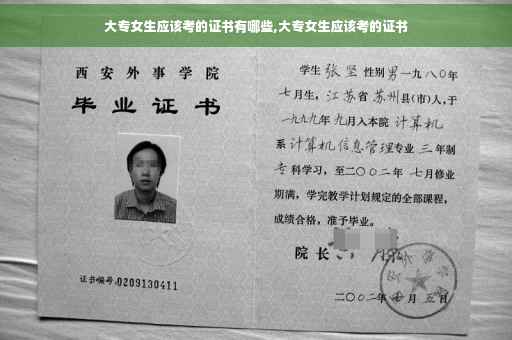 大专女生应该考的证书有哪些,大专女生应该考的证书
西安外事学院
毕业证书
证书编号:0209130411
学生 张坚 性别 男 一九八〇年
七月生,江苏省 苏州县(市)人,于
一九九九年 九月入本院 计算机
系 计算机信息管理专业 三 年制
专科学习,至二〇〇二年 七月修业
期满,学完教学计划规定的全部课程,
成绩合格,准予毕业。
院长
二〇〇二年 月五日